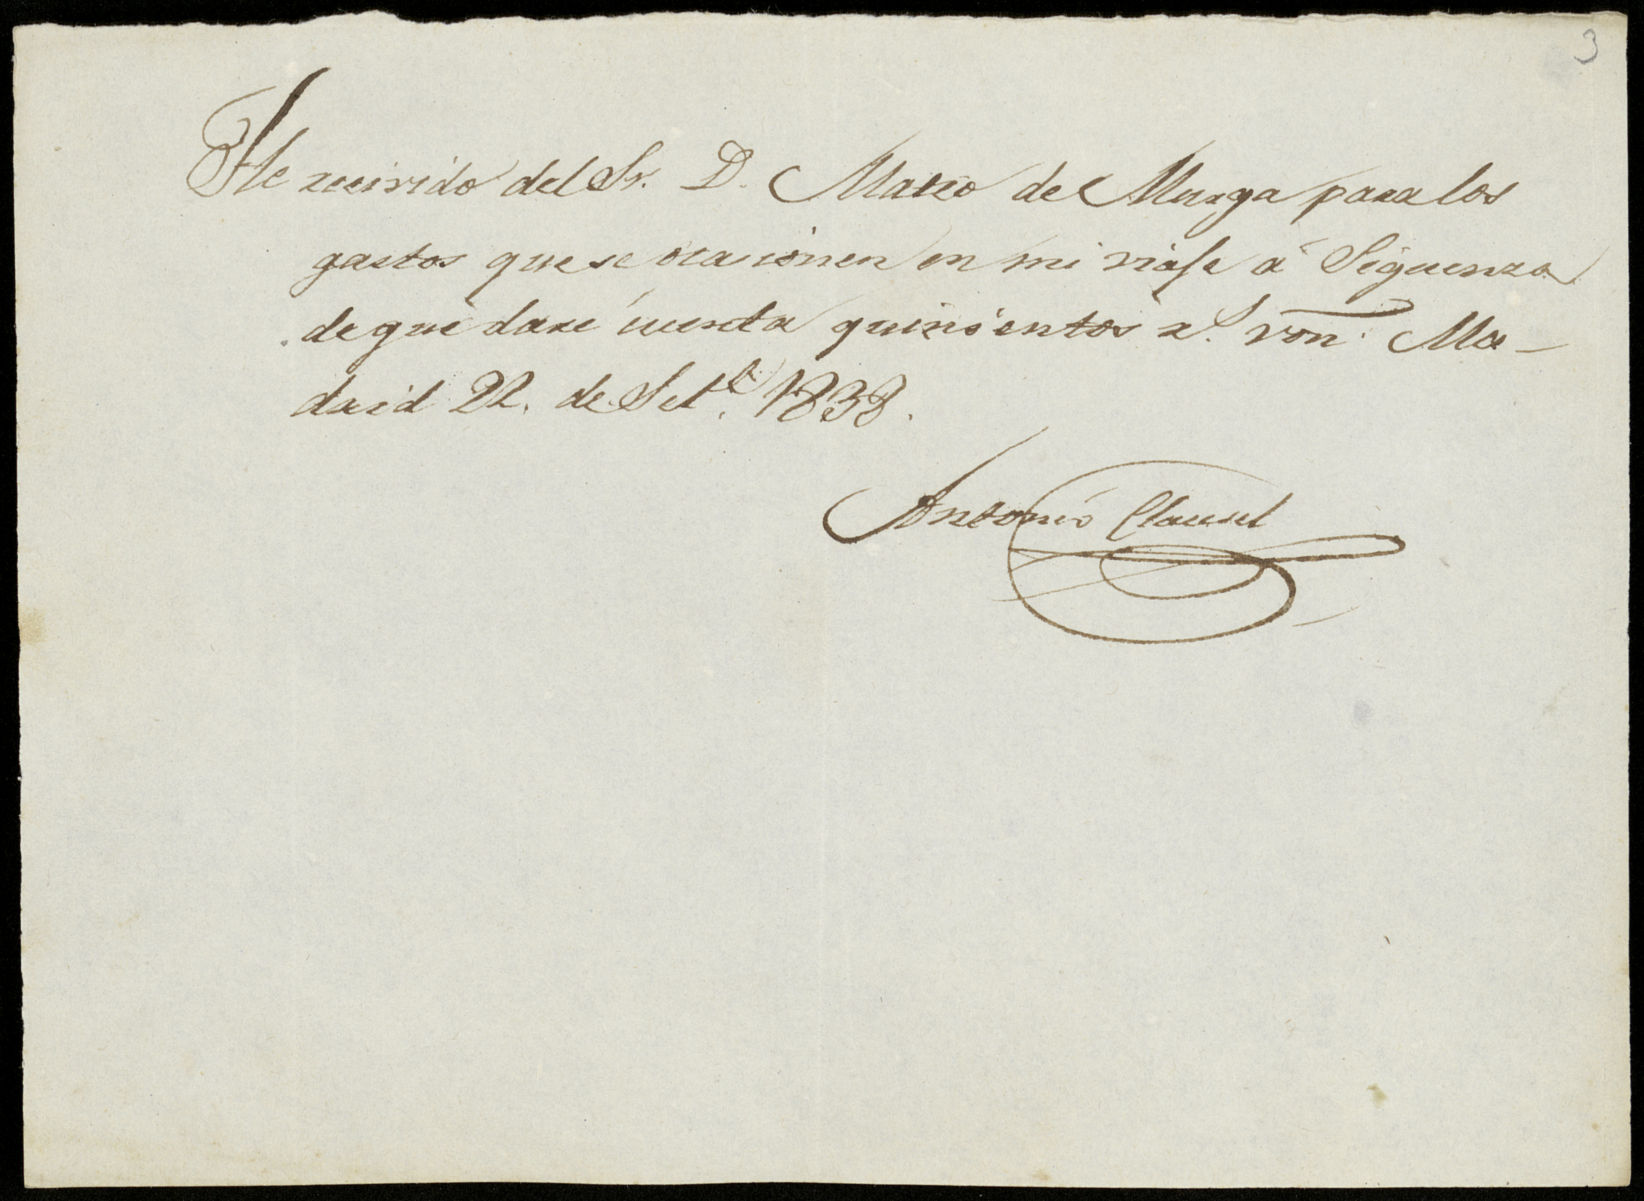 3
He recivido del Sr. D. Mateo de Murga para los
gastos que se ocasionen en mi viaje á Siguenza
de que dare cuenta quinientos r.s von. Ma-
drid 22. de Set.e 1838.
Antonio Clausel